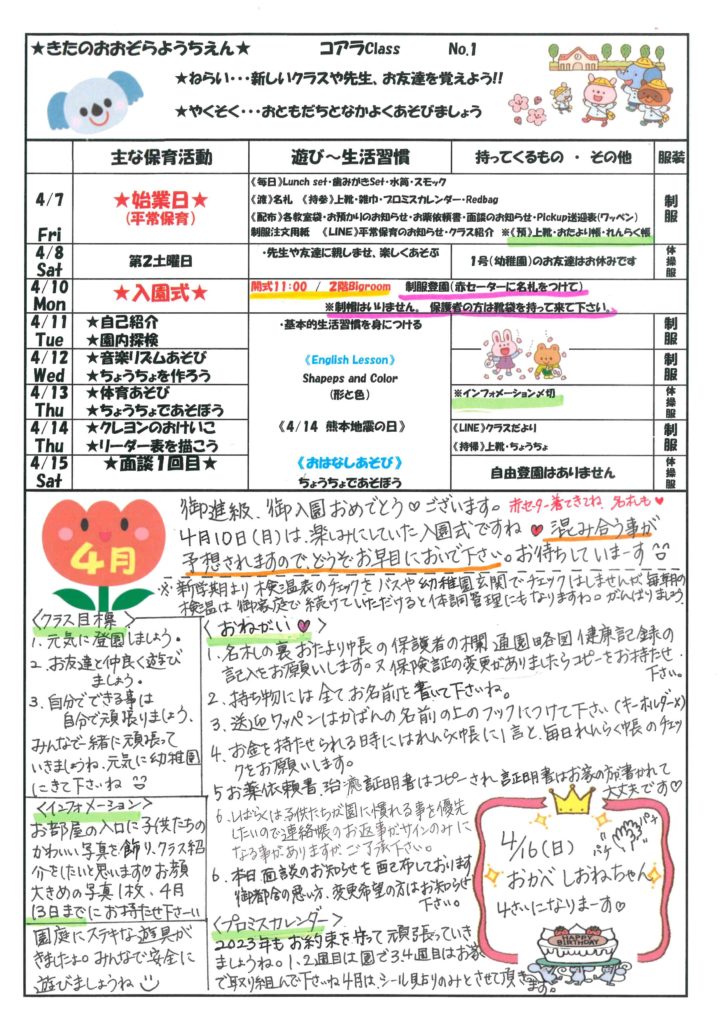 ★きたのおおぞらようちえん★ コアラClass No.1
★ねらい・・・新しいクラスや先生、お友達を覚えよう!!
★やくそく・・・おともだちとなかよくあそびましょう
主な保育活動 遊び～生活習慣 持ってくるもの ・ その他 服装
4/7 Fri
★始業日★
(平常保育)
《毎日》Lunch set・歯みがきSet・水筒・スモック
《渡》名札 《持参》上靴・雑巾・プロミスカレンダー・Redbag
《配布》各教室袋・お預かりのお知らせ・お薬依頼書・面談のお知らせ・Pickup送迎表(ワッペン)
制服注文用紙 《LINE》平常保育のお知らせ・クラス紹介 ※《預》上靴・おたより帳・れんらく帳
制服
4/8 Sat
第2土曜日
・先生や友達に親しませ、楽しくあそぶ
1号(幼稚園)のお友達はお休みです
体操服
4/10 Mon
★入園式★
開式11:00 / 2階Bigroom 制服登園(赤セーターに名札をつけて)
※制帽はいりません。 保護者の方は靴袋を持って来て下さい。
4/11 Tue
★自己紹介
★園内探検
・基本的生活習慣を身につける
制服
4/12 Wed
★音楽リズムあそび
★ちょうちょを作ろう
《English Lesson》
Shapeps and Color
(形と色)
制服
4/13 Thu
★体育あそび
★ちょうちょであそぼう
※インフォメーション〆切
体操服
4/14 Thu
★クレヨンのおけいこ
★リーダー表を描こう
《4/14 熊本地震の日》
《LINE》クラスだより
《持帰》上靴・ちょうちょ
制服
4/15 Sat
★面談1回目★
《おはなしあそび》
ちょうちょであそぼう
自由登園はありません
体操服
4月
御進級、御入園おめでとう♡ございます。赤セーター着てきてね 名札も♥
4月10日(月)は、楽しみにしていた入園式ですね♥混み合う事が
予想されますので、どうぞお早目においで下さい。お待ちしていまーす
※新学期より検温表のチェックをバスや幼稚園玄関でチェックはしませんが毎朝の
検温は御家庭で続けていただけると体調管理にもなりますね。がんばりましょう
〈クラス目標〉
1. 元気に登園しましょう。
2. お友達と仲良く遊び
ましょう。
3. 自分でできる事は
自分で頑張りましょう、
みんなで一緒に頑張って
いきましょうね、元気に幼稚園
にきて下さいね
〈インフォメーション〉
お部屋の入口に子供たちの
かわいい写真を飾り、クラス紹
介をしたいと思います♡お顔
大きめの写真1枚、4月
13日までにお持たせ下さーい
園庭にステキな遊具が
きましたよ。みんなで安全に
遊びましょうね
〈おねがい♥〉
1. 名札の裏おたより帳の保護者の欄通園略図健康記録の
記入をお願いします。又保険証の変更がありましたらコピーをお持たせ
下さい。
2. 持ち物には全てお名前を書いて下さいね。
3. 送迎ワッペンはかばんの名前の上のフックにつけて下さい(キーホルダー×)
4. お金を持たせられる時にはれんらく帳に1言と、毎日れんらく帳のチェッ
クをお願いします。
5 お薬依頼書、治癒証明書はコピーされ証明書はお家の方が書かれて
大丈夫です♡
6. しばらくは子供たちが園に慣れる事を優先
したいので連絡帳のお返事がサインのみに
なる事がありますがご了承下さい。
6. 本日面談のお知らせを配布しております
御都合の悪い方、変更希望の方はお知らせ
下さい。
〈プロミスカレンダー〉
2023年もお約束を守って頑張っていき
ましょうね。1、2週目は園で3.4週目はお家
で取り組んで下さいね4月は、シール見よりのみとさせて頂きます。
4/16(日) パチパチ
おかべ しおねちゃん
4さいになりまーす♡
HAPPY BIRTHDAY